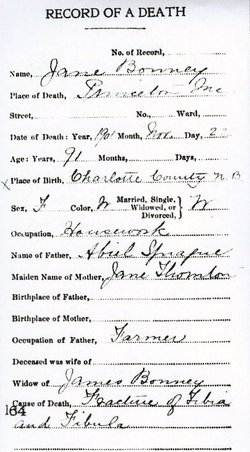 RECORD OF A DEATH
No. of Record,
Name, Jane Bonney
Place of Death, Princeton Me
Street, No., Ward,
Date of Death: Year, 1901 Month, Nov. Day, 2
Age: Years, 91 Months, Days,
x Place of Birth, Charlotte County N. B.
Sex, F Color, W Married, Single, Widowed, or Divorced, } W
Occupation, Housework
Name of Father, Abiel Sprague
Maiden Name of Mother, Jane Thornton
Birthplace of Father,
Birthplace of Mother,
Occupation of Father, Farmer
Deceased was wife of
Widow of James Bonney
Cause of Death, Fracture of Tibia
and Fibula
164